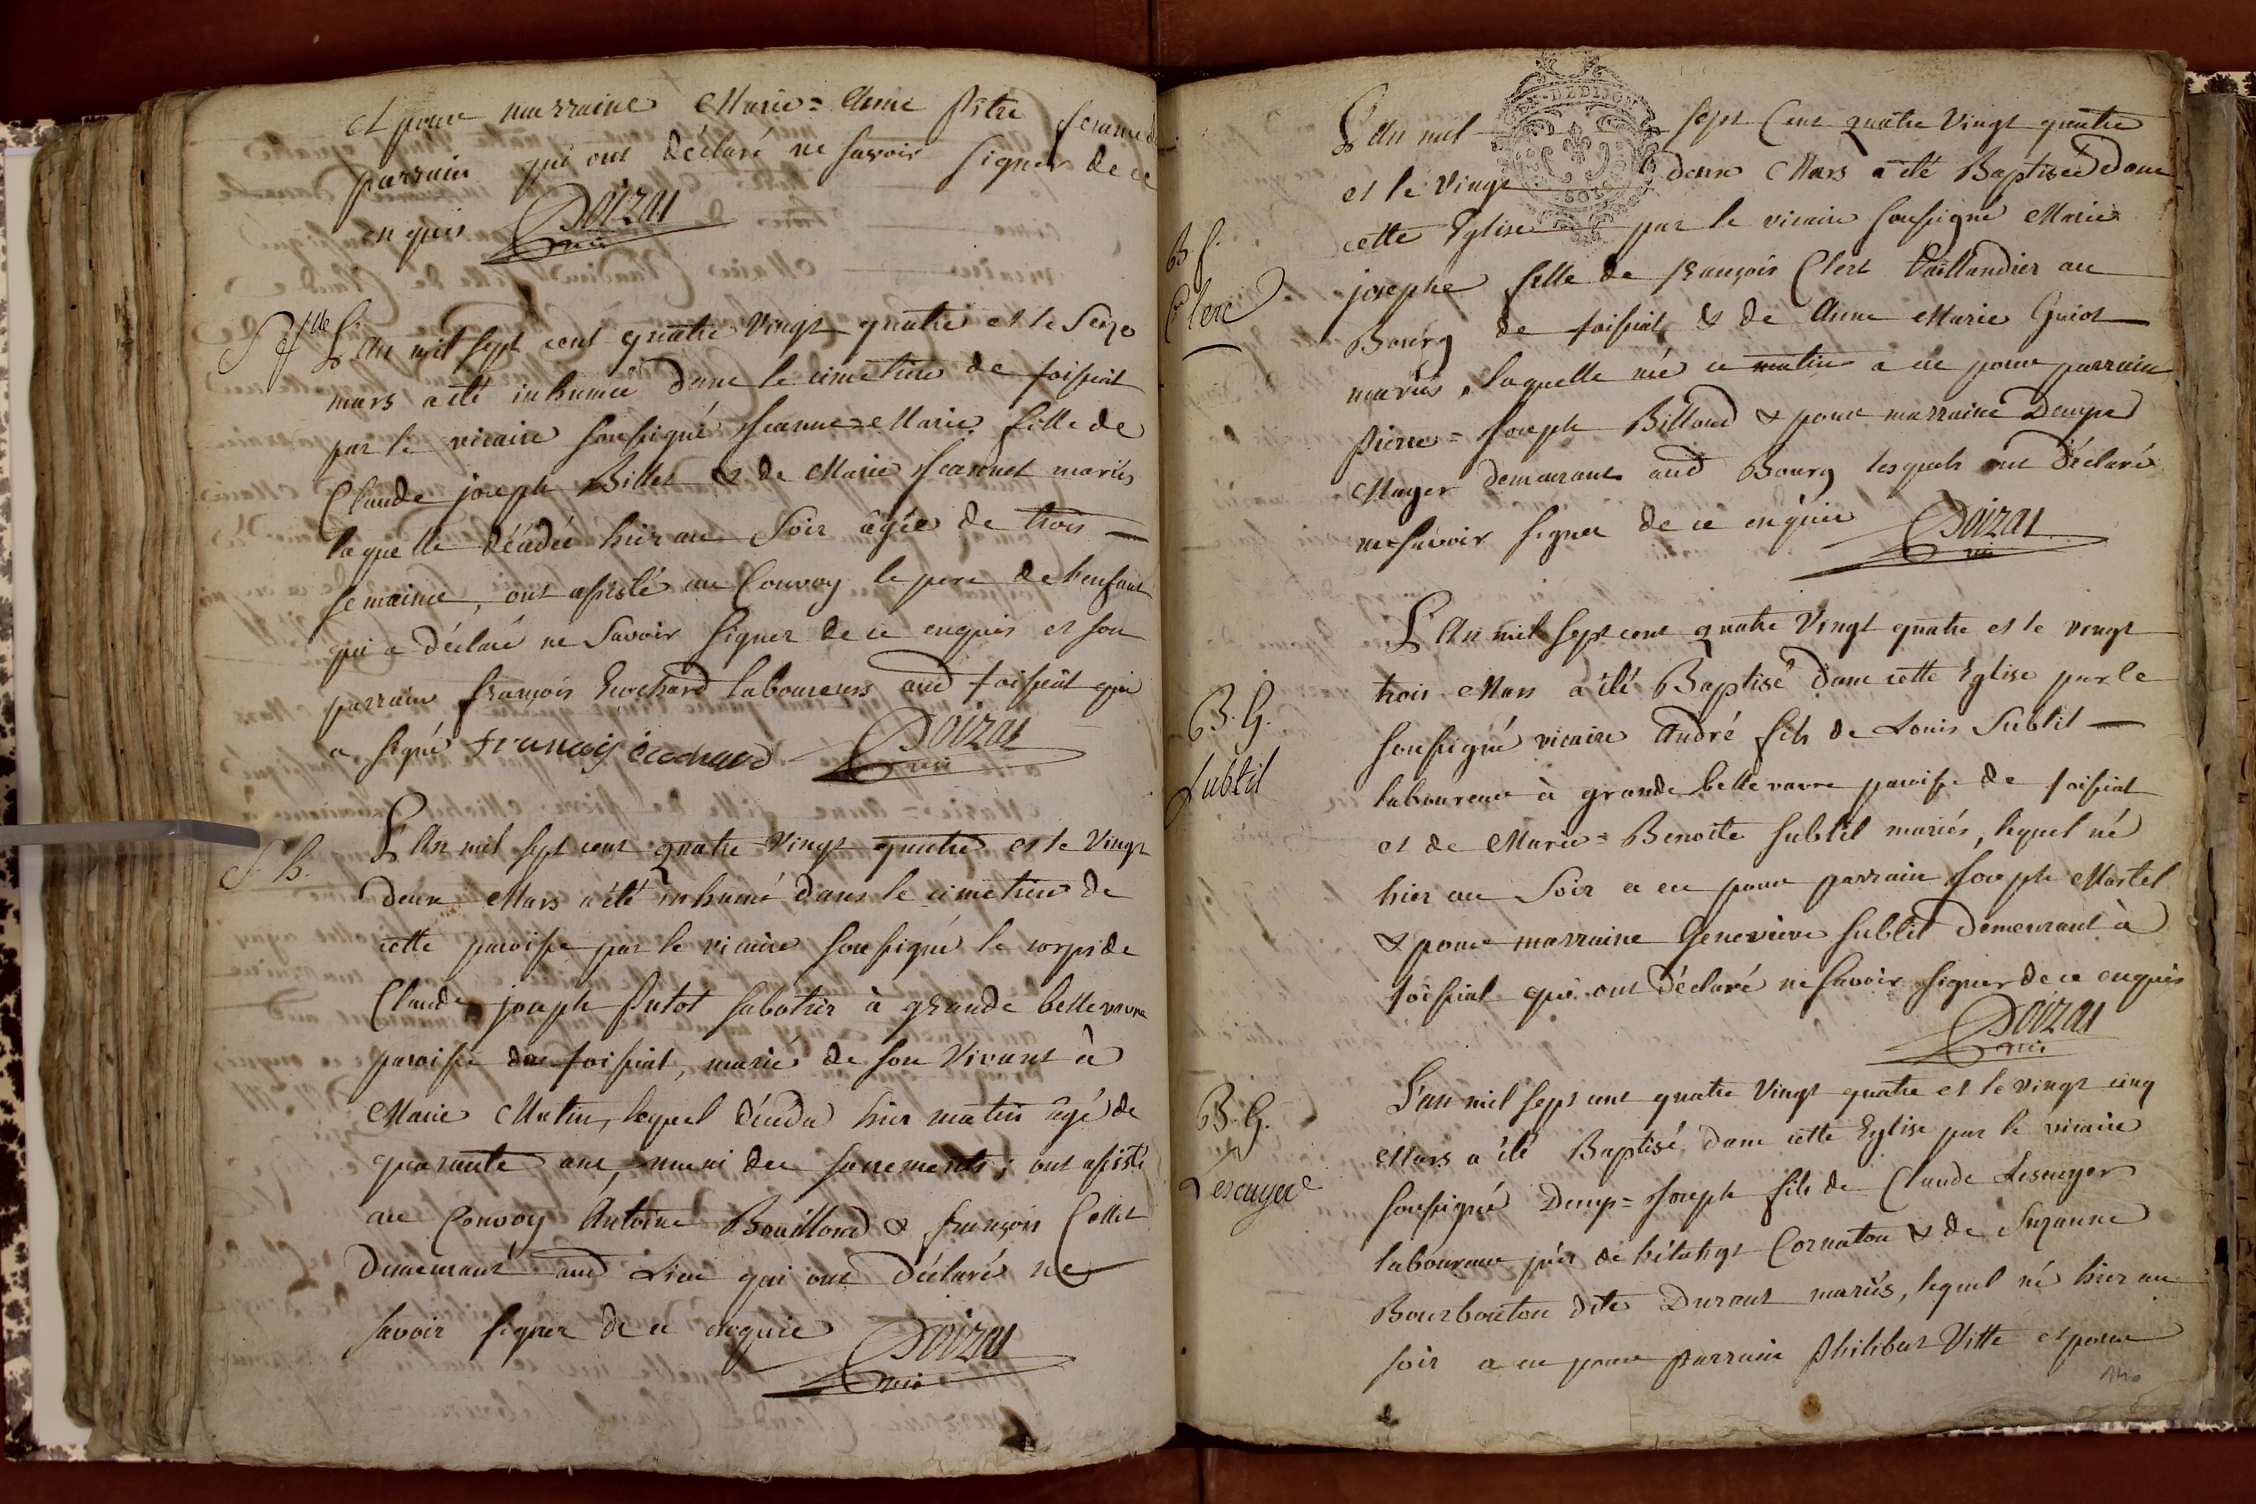 et pour marraine Marie=Anne Pitre femme d
parrain qui ont déclaré ne savoir signer de ce
enquis Doizat
vic
S f lle
L'An mil sept cent quatre vingt quatre et le seize
mars a été inhumée dans le cimetiere de foissiat
par le vicaire soussigné Jeanne=Marie fille de
Claude joseph Billet & de Marie Jeannet mariés
laquelle décédée hier au soir âgée de trois
semaines, ont assisté au Convoy le pere de l'enfant
qui a déclaré ne savoir signer de ce enquis et son
parrain françois Ecochard laboureurs aud foissiat qui
a signé françois écochard Doizat
vic
S. h.
L'An mil sept cent quatre vingt quatre et le vingt
deux Mars a été inhumé dans le cimetiere de
cette paroisse par le vicaire soussigné le corps de
Claude joseph Putot sabotier à grande bellevavre
paroisse de foissiat, marié de son vivant à
Marie Mutin, lequel décédé hier matin âgé de
quarante ans, muni des sacrements; ont assisté
au Convoy Antoine Bouilloud & françois Collet
demeurant aud Lieu qui ont déclaré ne
savoir signer de ce enquis Doizat
vic
DE DIJON
L'An mil sept Cent quatre vingt quatre
et le vingt deux Mars a été Baptisée dans
cette Eglise par le vicaire soussigné Marie
B f.
Clerc
josephe fille de françois Clerc taillandier au
Bourg de foissiat & de Anne Marie Guiot
mariés, laquelle née ce matin a eu pour parrain
Pierre=Joseph Billoud & pour marraine
Mayer demeurant aud Bourg lesquels ont déclaré
ne savoir signer de ce enquis Doizat
vic
B. G.
Subtil
L'An mil sept cent quatre vingt quatre et le vingt
trois Mars a été Baptisé dans cette Eglise par le
soussigné vicaire André fils de Louis Subtil
laboureur à grande bellevavre paroisse de foissiat
et de Marie=Benoite Subtil mariés, lequel né
hier au soir a eu pour parrain Joseph Martel
& pour marraine Genevieve Subtil demeurant à
foissiat qui ont déclaré ne savoir signer de ce enquis
Doizat
vic
B. G.
Lescuyer
L'an mil sept cent quatre vingt quatre et le vingt cinq
Mars a été Baptisé dans cette Eglise par le vicaire
soussigné Denys=Joseph fils de Claude Lescuyer
laboureur près de Cornaton & de Suzanne
Bourbouton dite Durant mariés, lequel né hier au
soir a eu pour parrain Philibert Vitte et pour
140